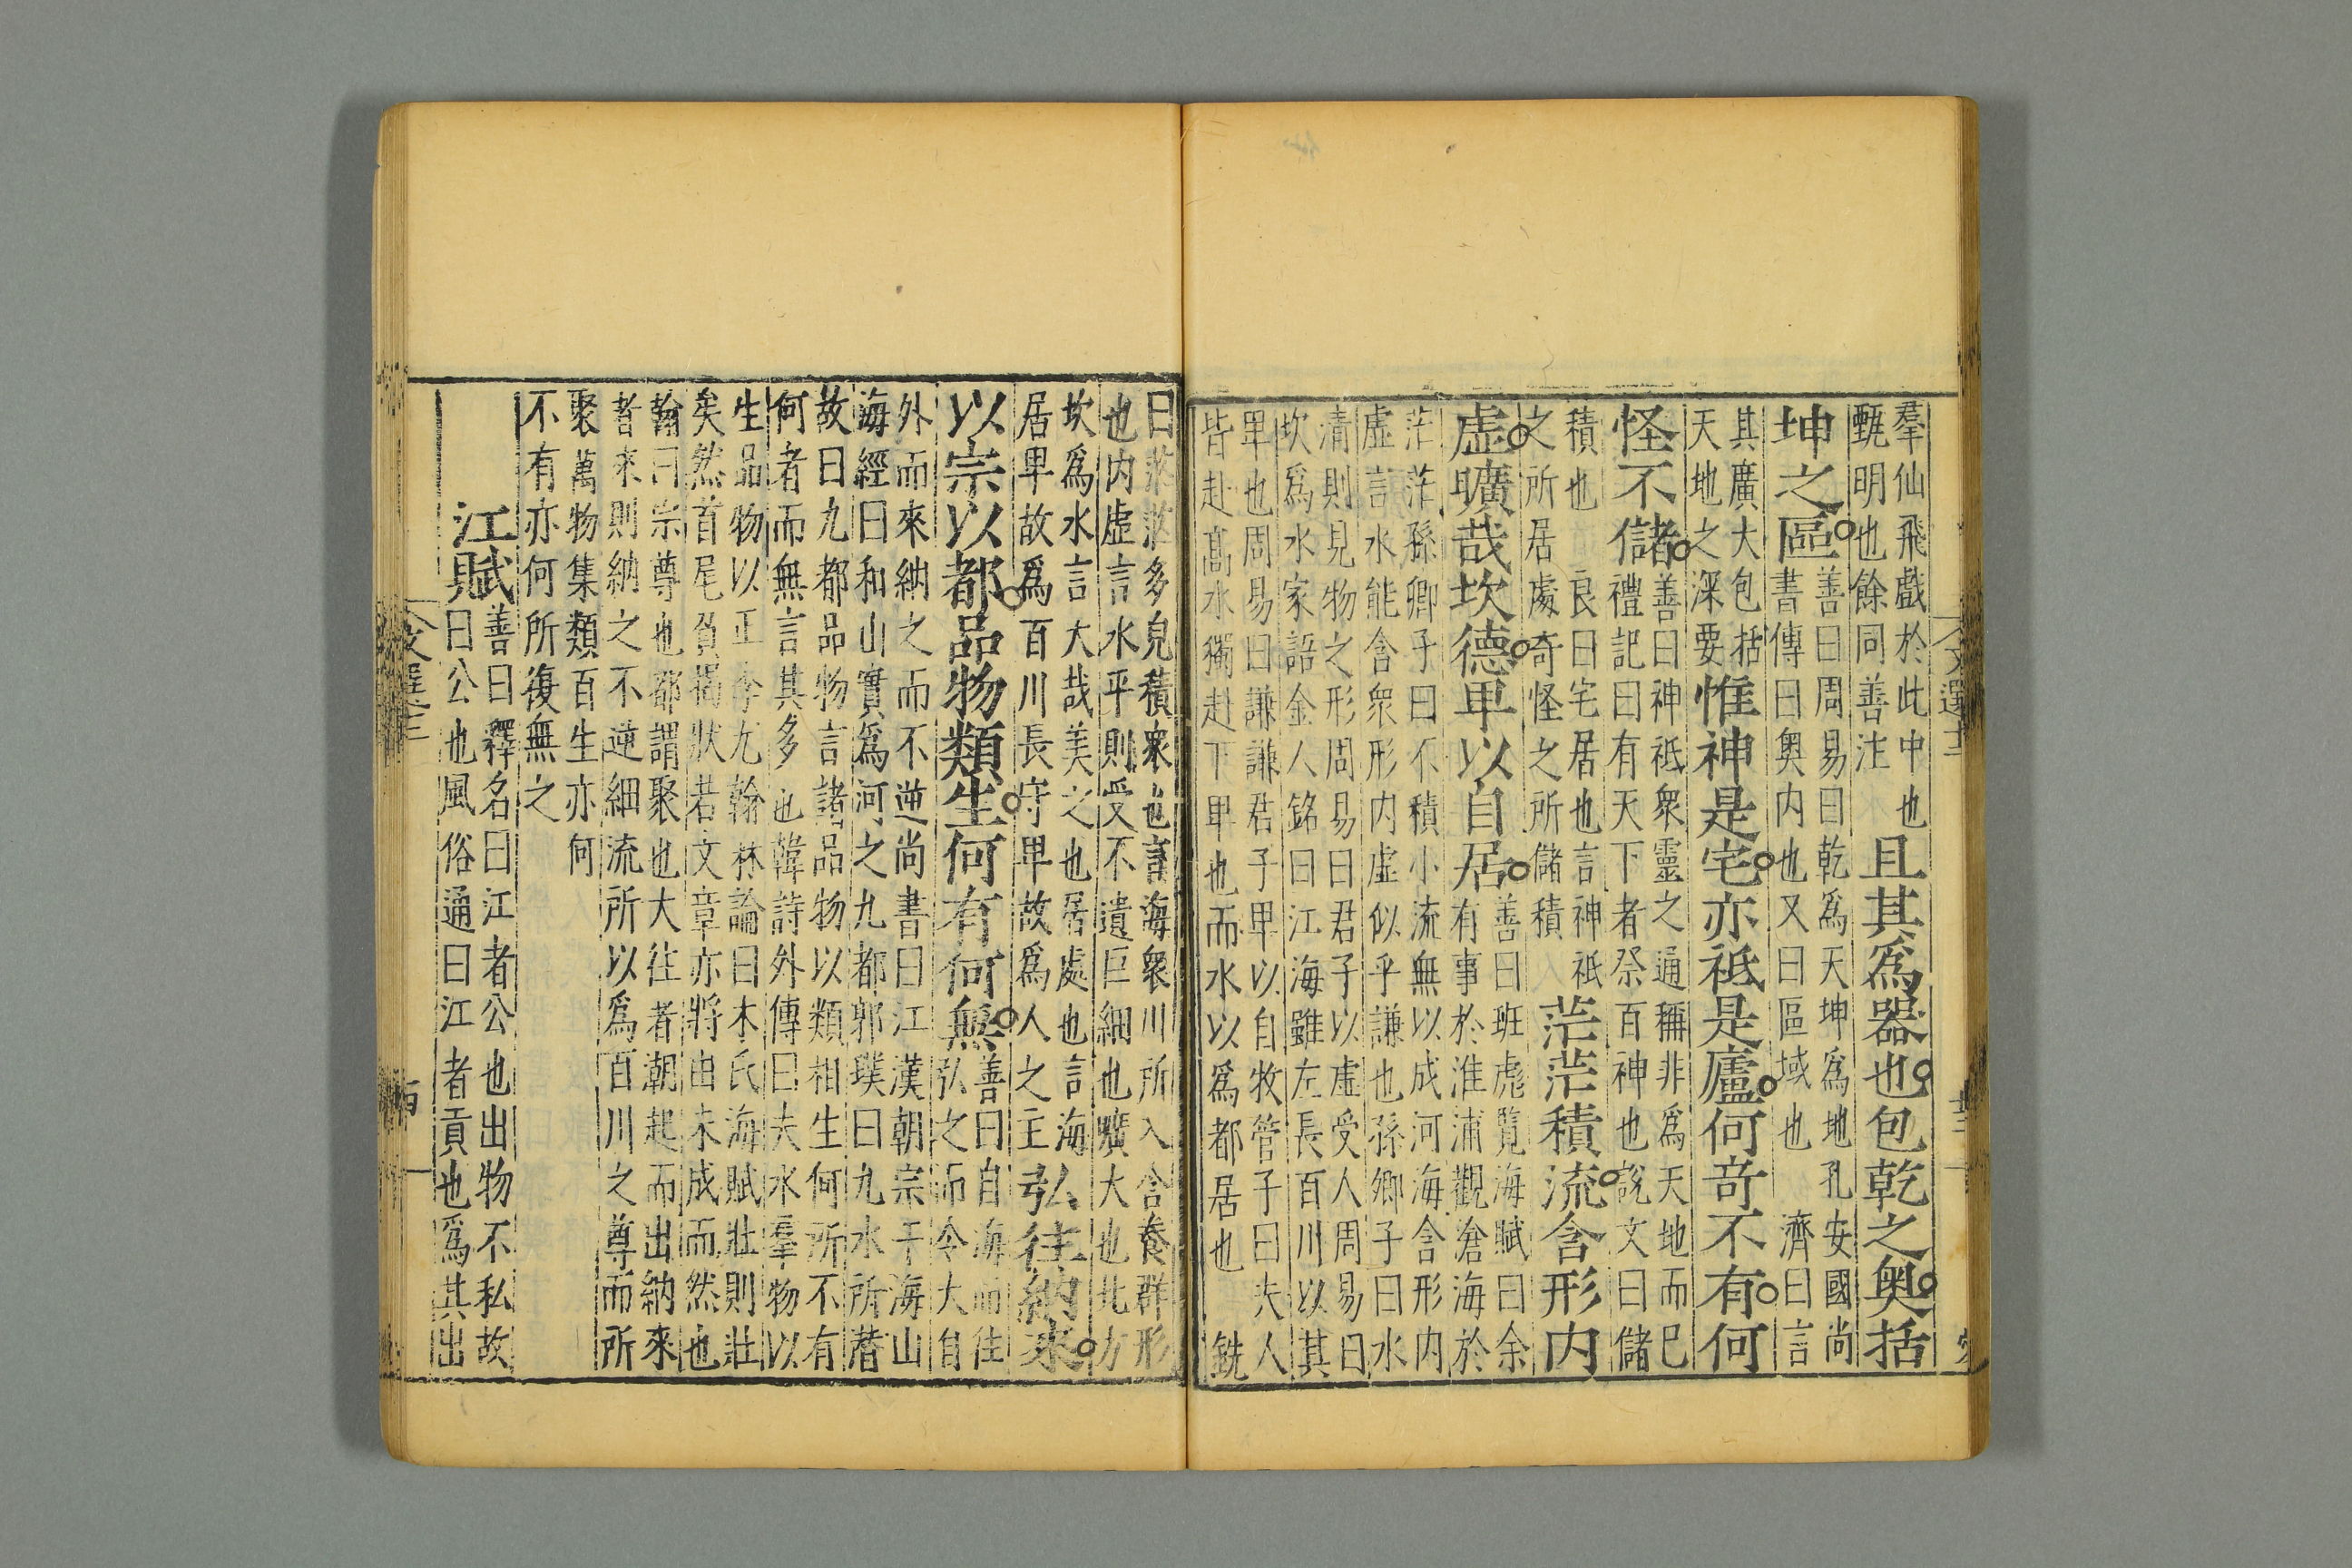 羣仙飛戲於此中也
甄明也餘同善注
且其爲器也包乾之奧括
坤之區
善曰周易曰乾爲天坤爲地孔安國尚
書傳曰奧内也又曰區域也 濟曰言
其廣大包括
天地之深要
惟神是宅亦祗是廬何奇不有何
怪不儲
善曰神祗衆靈之通稱非爲天地而已
禮記曰有天下者祭百神也說文曰儲
積也 良曰宅居也言神祗
之所居處奇怪之所儲積
茫茫積流含形内
虛曠哉坎德卑以自居
善曰班彪覽海賦曰余
有事於淮浦觀滄海於
茫茫孫卿子曰不積小流無以成河海含形内
虛言水能含衆形内虛似乎謙也孫卿子曰水
清則見物之形周易曰君子以虛受人周易曰
坎爲水家語金人銘曰江海雖左長百川以其
卑也周易曰謙謙君子卑以自牧管子曰夫人
皆赴高水獨赴下卑也而水以爲都居也 銑
曰茫茫多皃積衆也言海衆川所入含養群形
也内虛言水平則受不遺巨細也曠大也北方
坎爲水言大哉美之也居處也言海
居卑故爲百川長守卑故爲人之主
弘往納來
以宗以都品物類生何有何無
善曰自海而往
弘之而令大自
外而來納之而不逆尚書曰江漢朝宗于海山
海經曰和山實爲河之九都郭璞曰九水所潛
故曰九都品物言諸品物以類相生何所不有
何者而無言其多也韓詩外傳曰夫水羣物以
生品物以正李尤翰林論曰木氏海賦壯則壯
矣然首尾負揭狀若文章亦將由未成而然也
翰曰宗尊也都謂聚也大往者朝起而出納來
者來則納之不逆細流所以爲百川之尊而所
聚萬物集類百生亦何
不有亦何所復無之
江賦
善曰釋名曰江者公也出物不私故
曰公也風俗通曰江者貢也爲其出
文選十二